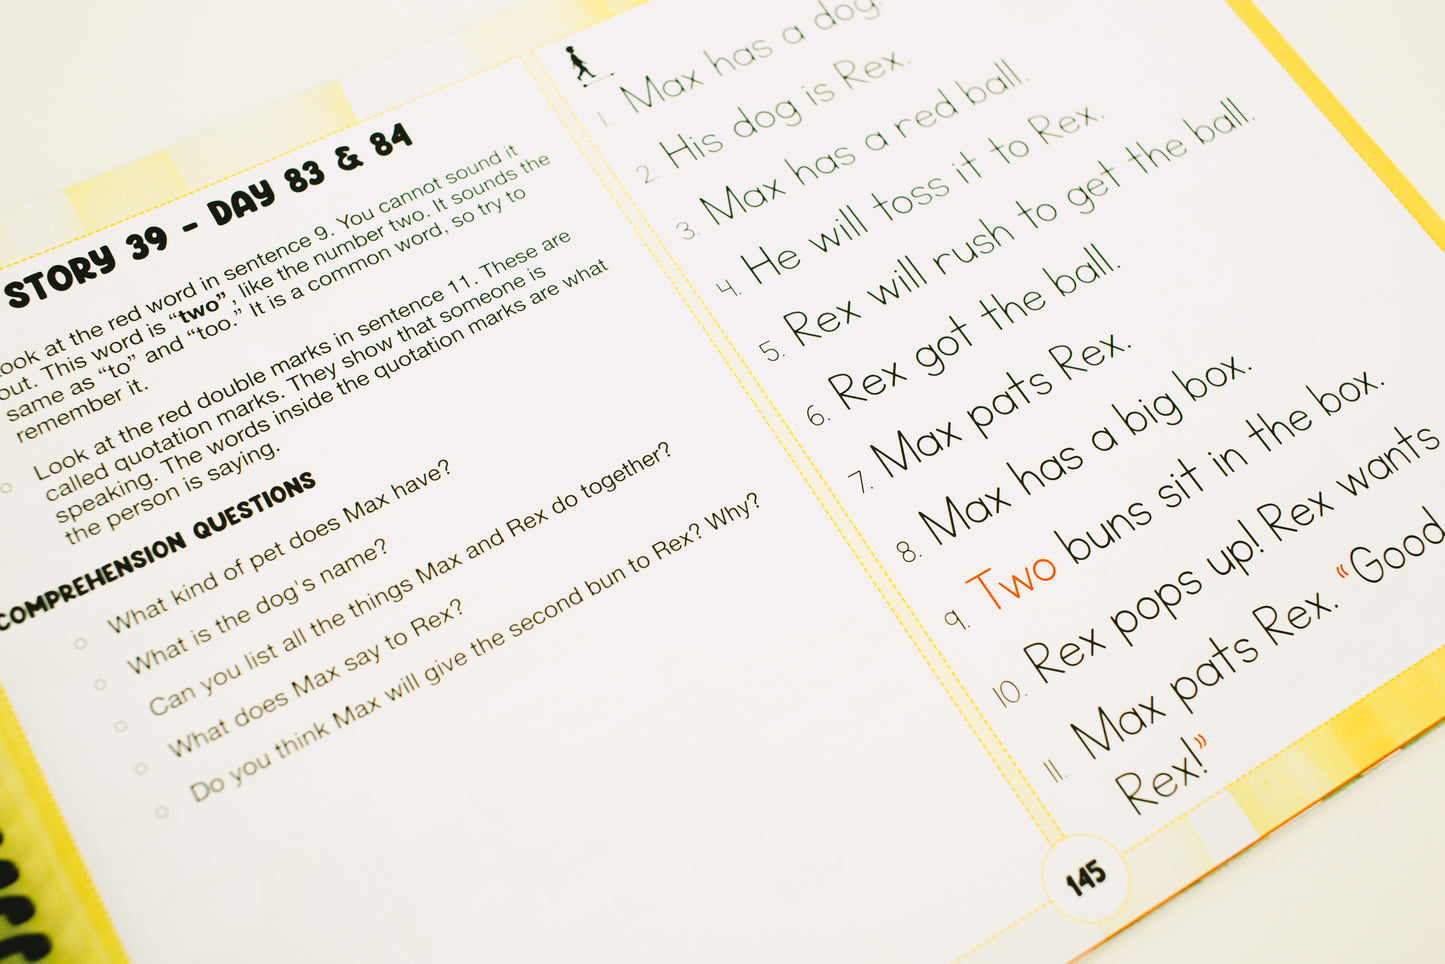 STORY 39 - DAY 83 & 84
ook at the red word in sentence 9. You cannot sound it
out. This word is “two”, like the number two. It sounds the
same as “to” and “too.” It is a common word, so try to
remember it.
Look at the red double marks in sentence 11. These are
called quotation marks. They show that someone is
speaking. The words inside the quotation marks are what
the person is saying.
COMPREHENSION QUESTIONS
What kind of pet does Max have?
What is the dog's name?
Can you list all the things Max and Rex do together?
What does Max say to Rex?
Do you think Max will give the second bun to Rex? Why?
1. Max has a dog.
2. His dog is Rex.
3. Max has a red ball.
4. He will toss it to Rex.
5. Rex will rush to get the ball.
6. Rex got the ball.
7. Max pats Rex.
8. Max has a big box.
9. Two buns sit in the box.
10. Rex pops up! Rex wants
11. Max pats Rex. “Good
Rex!”
145